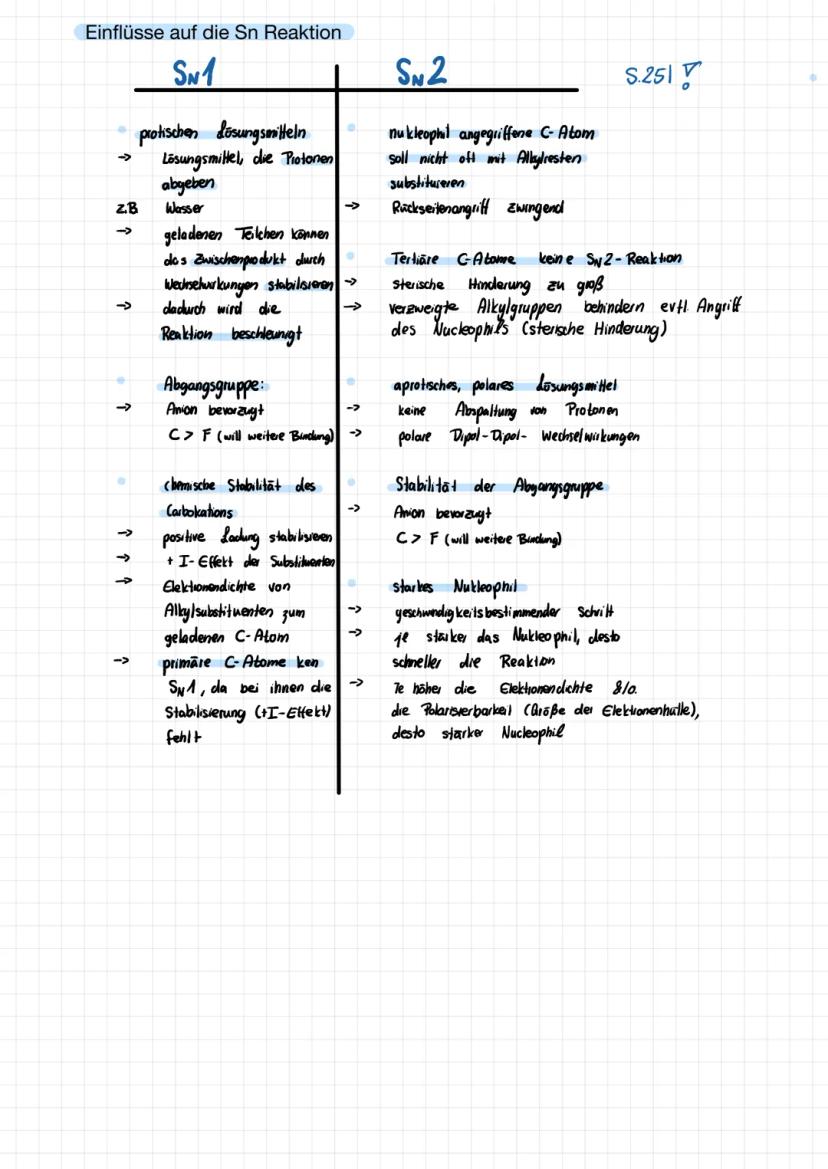 Einflüsse auf die Sn Reaktion
SN1
SN2
S.251 !
• protischen Lösungsmitteln
→ Lösungsmittel, die Protonen
abgeben
z.B Wasser
→ geladenen Teilchen können
das Zwischenprodukt durch
Wechselwirkungen stabilisieren
→ dadurch wird die
Reaktion beschleunigt
• Abgangsgruppe:
→ Anion bevorzugt
C > F (will weitere Bindung)
• chemische Stabilität des
Carbokations
→ positive Ladung stabilisieren
→ + I-Effekt der Substituenten
→ Elektronendichte von
Alkylsubstituenten zum
geladenen C-Atom
→ primäre C-Atome kein
SN1, da bei ihnen die
Stabilisierung (+I-Effekt)
fehlt
• nukleophil angegriffene C-Atom
soll nicht oft mit Alkylresten
substituieren
→ Rückseitenangriff zwingend
• Tertiäre C-Atome keine SN2-Reaktion
→ sterische Hinderung zu groß
→ verzweigte Alkylgruppen behindern evtl. Angriff
des Nucleophils (sterische Hinderung)
• aprotisches, polares Lösungsmittel
→ keine Abspaltung von Protonen
→ polare Dipol-Dipol- Wechselwirkungen
• Stabilität der Abgangsgruppe
→ Anion bevorzugt
C > F (will weitere Bindung)
• starkes Nukleophil
→ geschwindigkeitsbestimmender Schritt
→ je stärker das Nukleophil, desto
schneller die Reaktion
→ Je höher die Elektronendichte &/o.
die Polarisierbarkeit (Größe der Elektronenhülle),
desto stärker Nucleophil